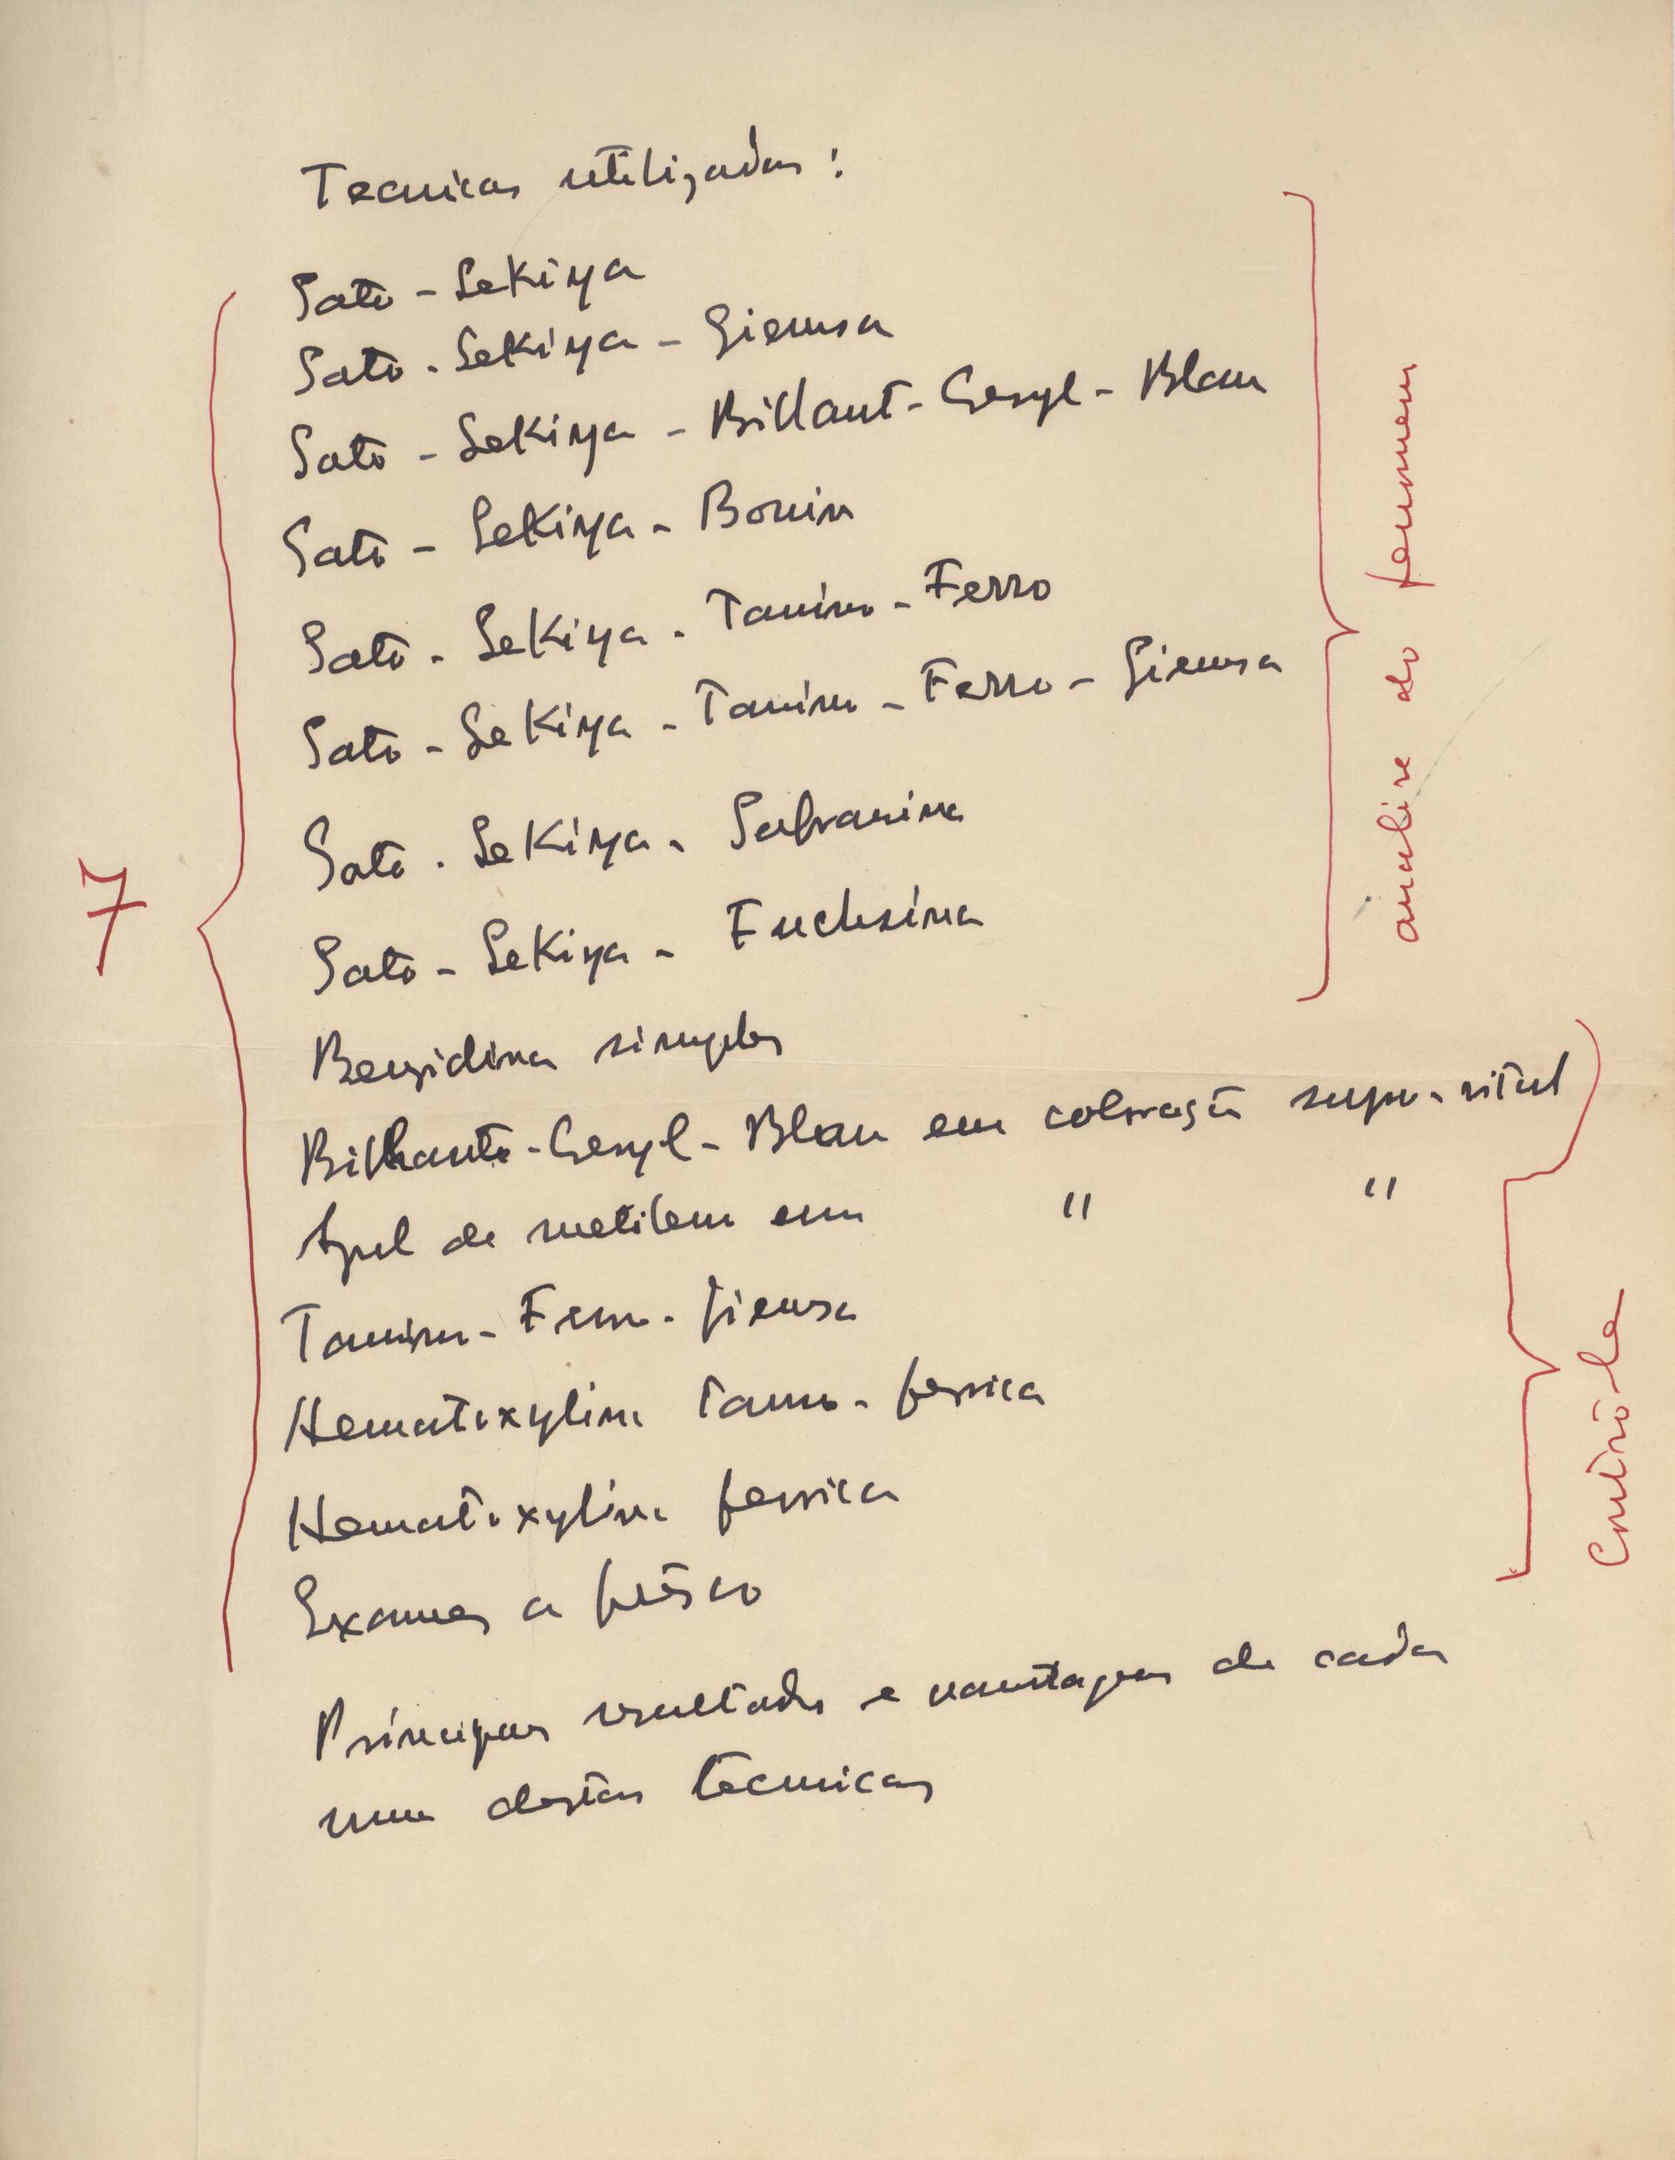 Tecnicas utilizadas:
Sato - Sekiya
Sato - Sekiya - Giemsa
Sato - Sekiya - Billant - Cresyl - Blau
Sato - Sekiya - Bouin
Sato - Sekiya - Tanino - Ferro
Sato - Sekiya - Tanino - Ferro - Giemsa
Sato - Sekiya - Safranina
Sato - Sekiya - Fuchsina
Benzidina simples
Bilhante - Cresyl - Blau em coloração supra-vital
Azul de metileno em " "
Tanino - Ferro - Giemsa
Hematoxylina Tanno - ferrica
Hematoxylina ferrica
Exames a frêsco
Principaes resultados e vantagens de cada
uma destas tecnicas
7
analise do fenomeno
Contrôle